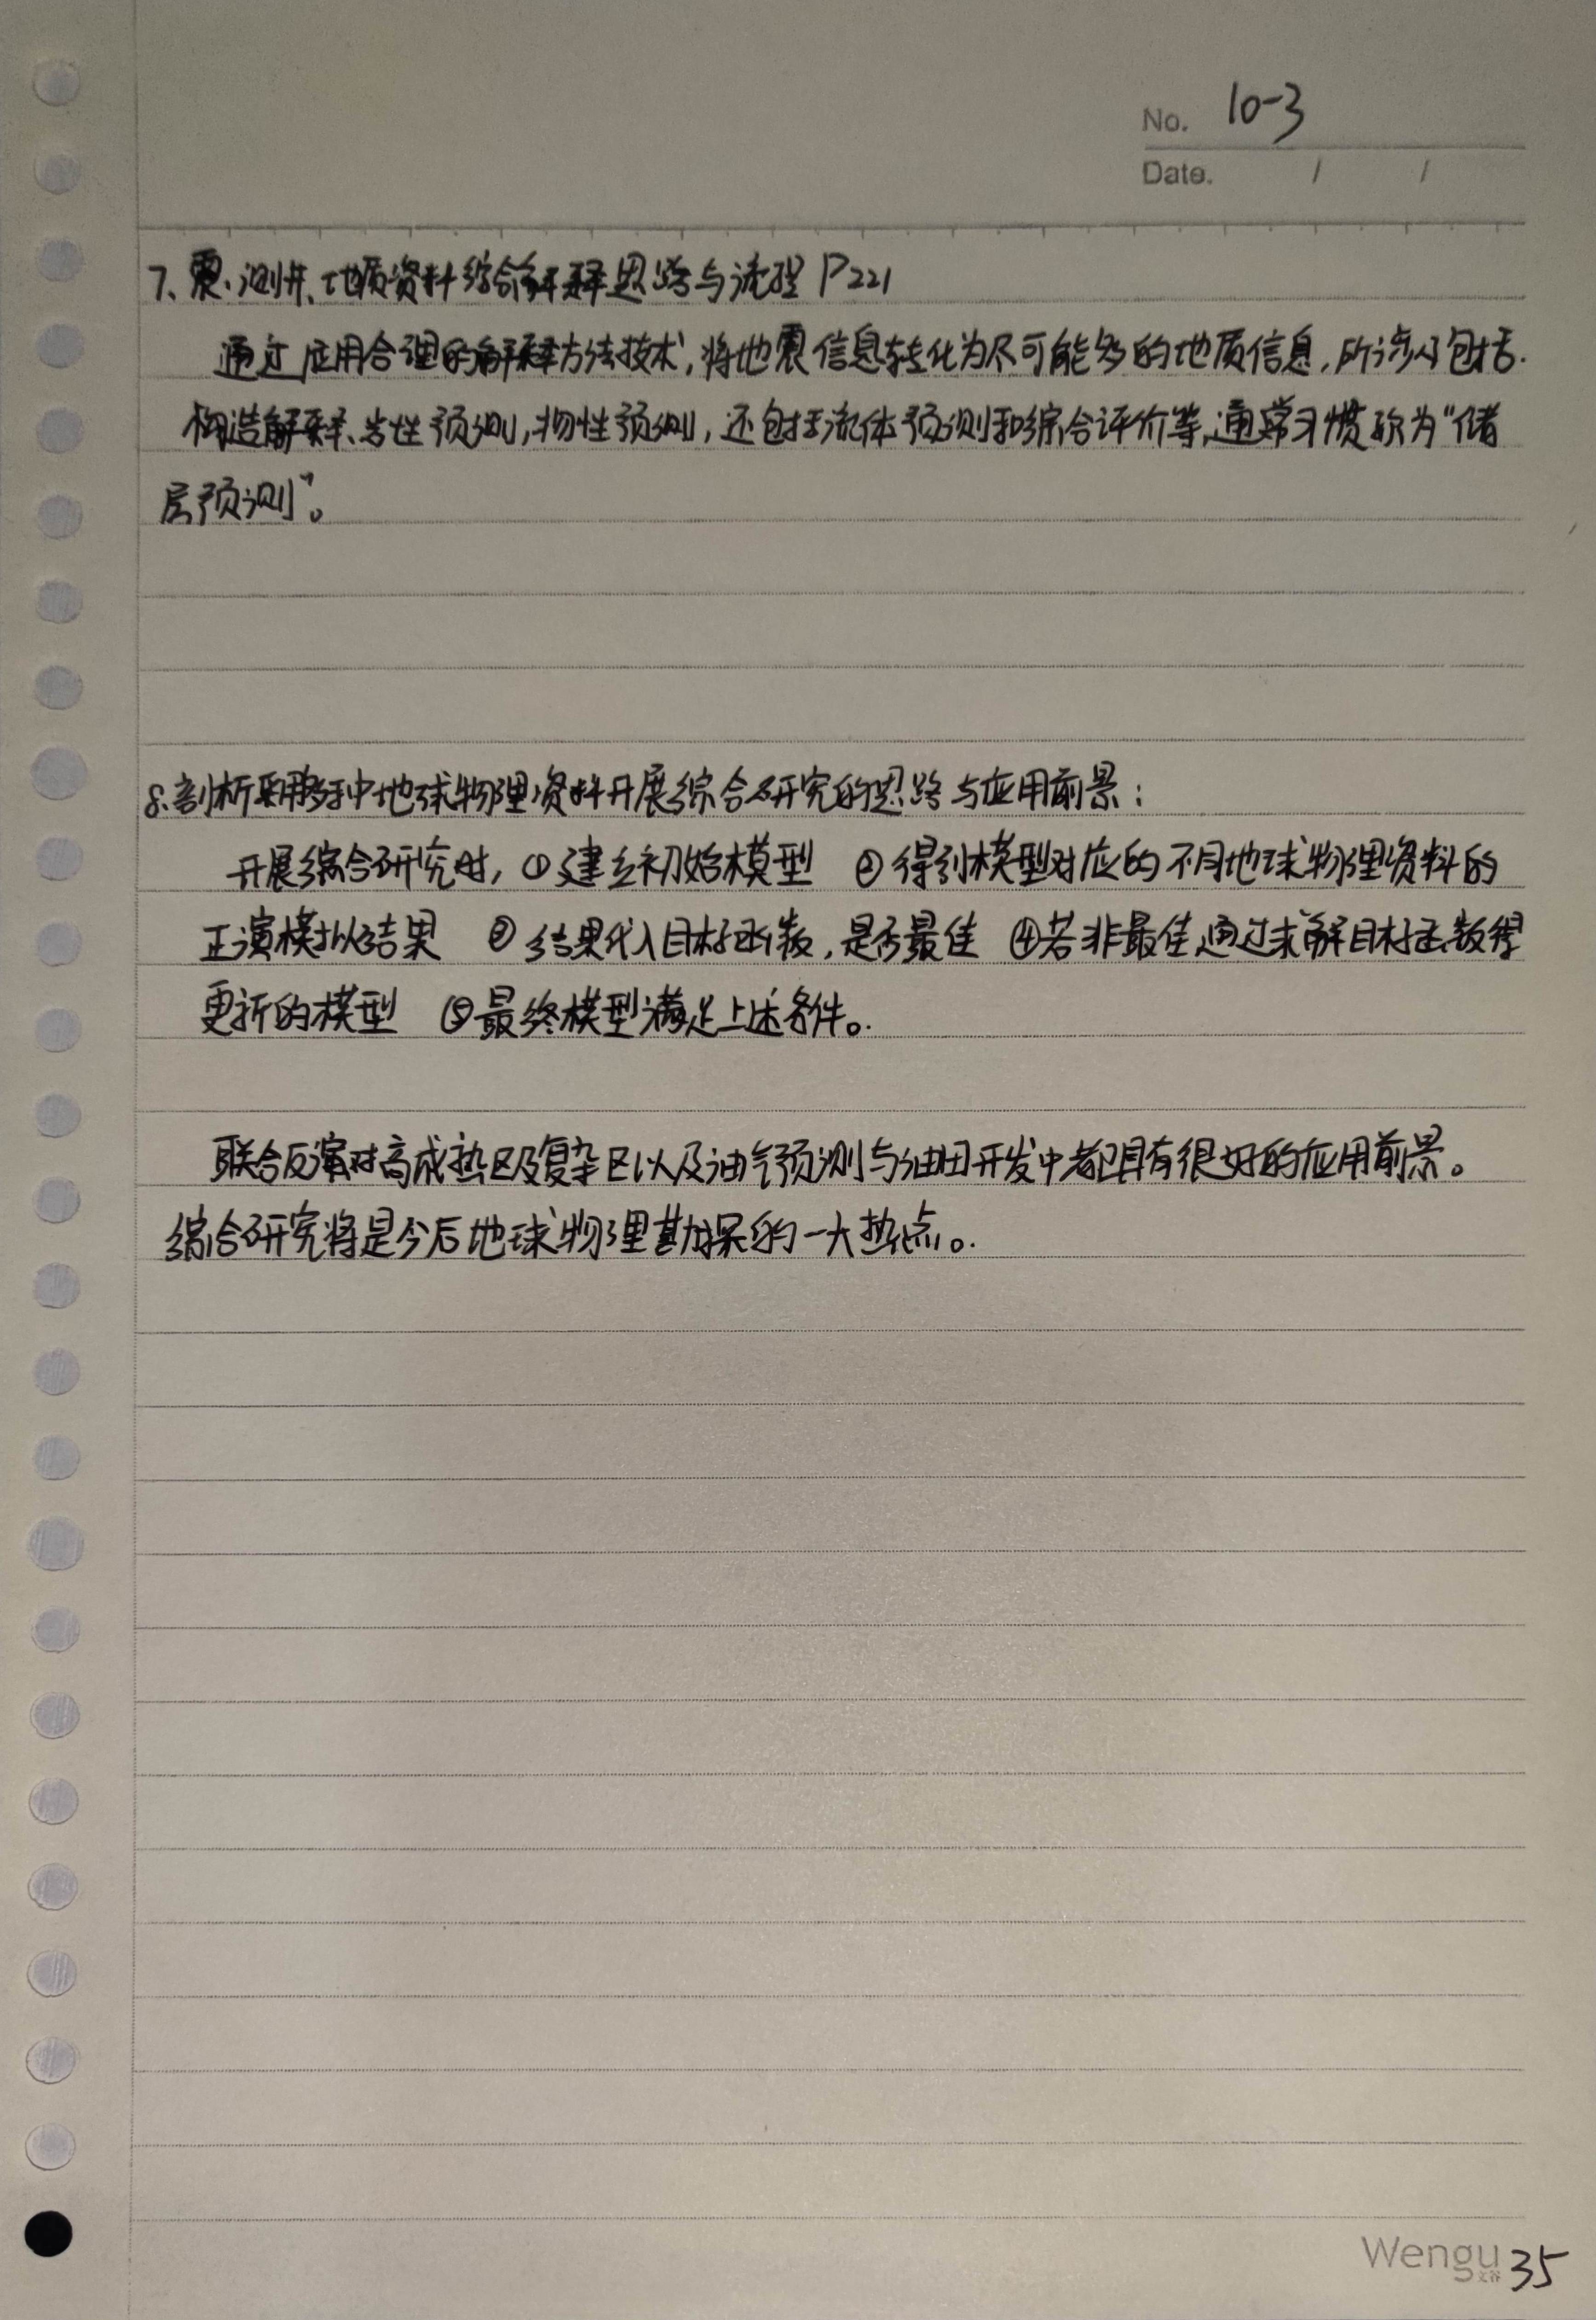 No. 10-3
Date. / /
7、震、测井、地质资料综合解释思路与流程 P221
通过应用合理的解释方法技术,将地震信息转化为尽可能多的地质信息,所涉及包括.
构造解释、岩性预测,物性预测,还包括流体预测和综合评价等,通常习惯称为“储
层预测”。
8、剖析采用多种地球物理资料开展综合研究的思路与应用前景:
开展综合研究时,①建立初始模型 ②得到模型对应的不同地球物理资料的
正演模拟结果 ③结果代入目标函数,是否最佳 ④若非最佳,通过求解目标函数得
更新的模型 ⑤最终模型满足上述条件。
联合反演对高成熟区及复杂区以及油气预测与油田开发中都具有很好的应用前景。
综合研究将是今后地球物理勘探的一大热点。
Wengu 35
文谷